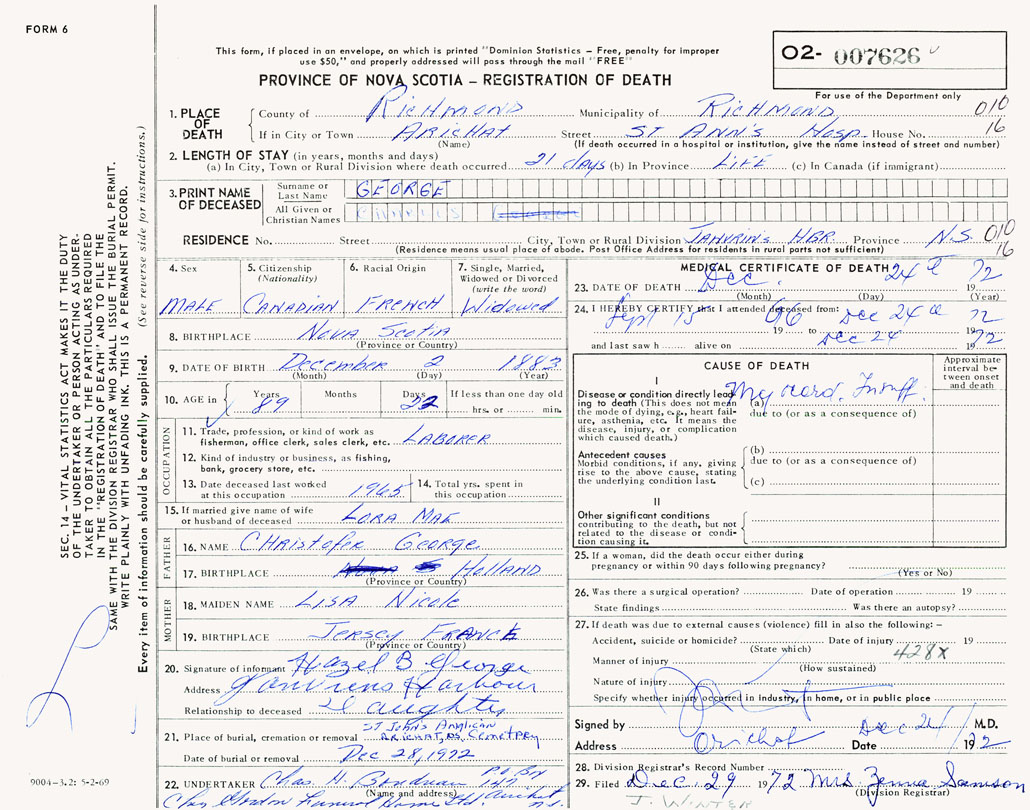 FORM 6
This form, if placed in an envelope, on which is printed "Dominion Statistics – Free, penalty for improper
use $50," and properly addressed will pass through the mail "FREE"
PROVINCE OF NOVA SCOTIA – REGISTRATION OF DEATH
O2- 007626
For use of the Department only
010
16
1. PLACE OF DEATH
County of RICHMOND Municipality of RICHMOND
If in City or Town ARICHAT Street ST ANN'S Hosp. House No.
(Name) (If death occurred in a hospital or institution, give the name instead of street and number)
2. LENGTH OF STAY (in years, months and days)
(a) In City, Town or Rural Division where death occurred 21 days (b) In Province LIFE (c) In Canada (if immigrant)
3. PRINT NAME OF DECEASED
Surname or Last Name GEORGE
All Given or Christian Names
RESIDENCE No. Street City, Town or Rural Division JANVRIN'S HBR. Province N.S. 010
16
(Residence means usual place of abode. Post Office Address for residents in rural parts not sufficient)
4. Sex 5. Citizenship (Nationality) 6. Racial Origin 7. Single, Married, Widowed or Divorced (write the word)
MALE CANADIAN FRENCH Widowed
8. BIRTHPLACE Nova Scotia
(Province or Country)
9. DATE OF BIRTH December 2 1883
(Month) (Day) (Year)
10. AGE in Years Months Days If less than one day old
89 22 hrs. or min.
OCCUPATION
11. Trade, profession, or kind of work as
fisherman, office clerk, sales clerk, etc. LABORER
12. Kind of industry or business, as fishing,
bank, grocery store, etc.
13. Date deceased last worked
at this occupation 1965
14. Total yrs. spent in
this occupation
15. If married give name of wife
or husband of deceased LORA MAE
FATHER
16. NAME CHRISTOFER George
17. BIRTHPLACE HOLLAND
(Province or Country)
MOTHER
18. MAIDEN NAME LISA Nicole
19. BIRTHPLACE JERSEY FRANCE
(Province or Country)
20. Signature of informant Hazel B George
Address Janvrens Harbour
Relationship to deceased Daughter
21. Place of burial, cremation or removal ST John's Anglican
ARICHAT, NS Cemetery
Date of burial or removal Dec 28, 1972
22. UNDERTAKER Chas. H. Boudreau P.O. Box
(Name and address)
Funeral Home Ltd. Arichat
N.S.
MEDICAL CERTIFICATE OF DEATH
23. DATE OF DEATH Dec. 24th 1972
(Month) (Day) (Year)
24. I HEREBY CERTIFY that I attended deceased from:
Sept 15 1966 to Dec 24th 1972
and last saw h alive on Dec 24 1972
CAUSE OF DEATH
Approximate interval between onset and death
I
Disease or condition directly leading to death (This does not mean the mode of dying, e.g., heart failure, asthenia, etc. It means the disease, injury, or complication which caused death.)
(a) Myocard. Insuff.
due to (or as a consequence of)
Antecedent causes
Morbid conditions, if any, giving rise to the above cause, stating the underlying condition last.
(b)
due to (or as a consequence of)
(c)
II
Other significant conditions
contributing to the death, but not related to the disease or condition causing it.
25. If a woman, did the death occur either during
pregnancy or within 90 days following pregnancy?
(Yes or No)
26. Was there a surgical operation? Date of operation 19
State findings Was there an autopsy?
27. If death was due to external causes (violence) fill in also the following: –
Accident, suicide or homicide? Date of injury 19
(State which) 428X
Manner of injury
(How sustained)
Nature of injury
Specify whether injury occurred in industry, in home, or in public place
Signed by M.D.
Address Arichat Date Dec 24/ 1972
28. Division Registrar's Record Number
29. Filed Dec 29 1972 Mrs Samson
(Division Registrar)
J. WINTER
SEC. 14 – VITAL STATISTICS ACT MAKES IT THE DUTY
OF THE UNDERTAKER OR PERSON ACTING AS UNDER-
TAKER TO OBTAIN ALL THE PARTICULARS REQUIRED
IN THE "REGISTRATION OF DEATH" AND TO FILE THE
SAME WITH THE DIVISION REGISTRAR WHO SHALL ISSUE THE BURIAL PERMIT.
WRITE PLAINLY WITH UNFADING INK. THIS IS A PERMANENT RECORD.
Every item of information should be carefully supplied. (See reverse side for instructions.)
9004-3.2: 5-2-69